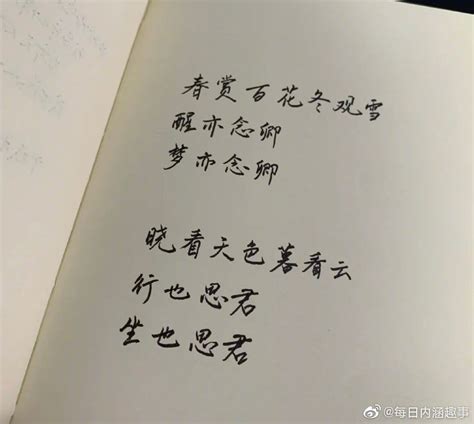 春赏百花冬观雪
醒亦念卿
梦亦念卿
晓看天色暮看云
行也思君
坐也思君
@每日内涵趣事